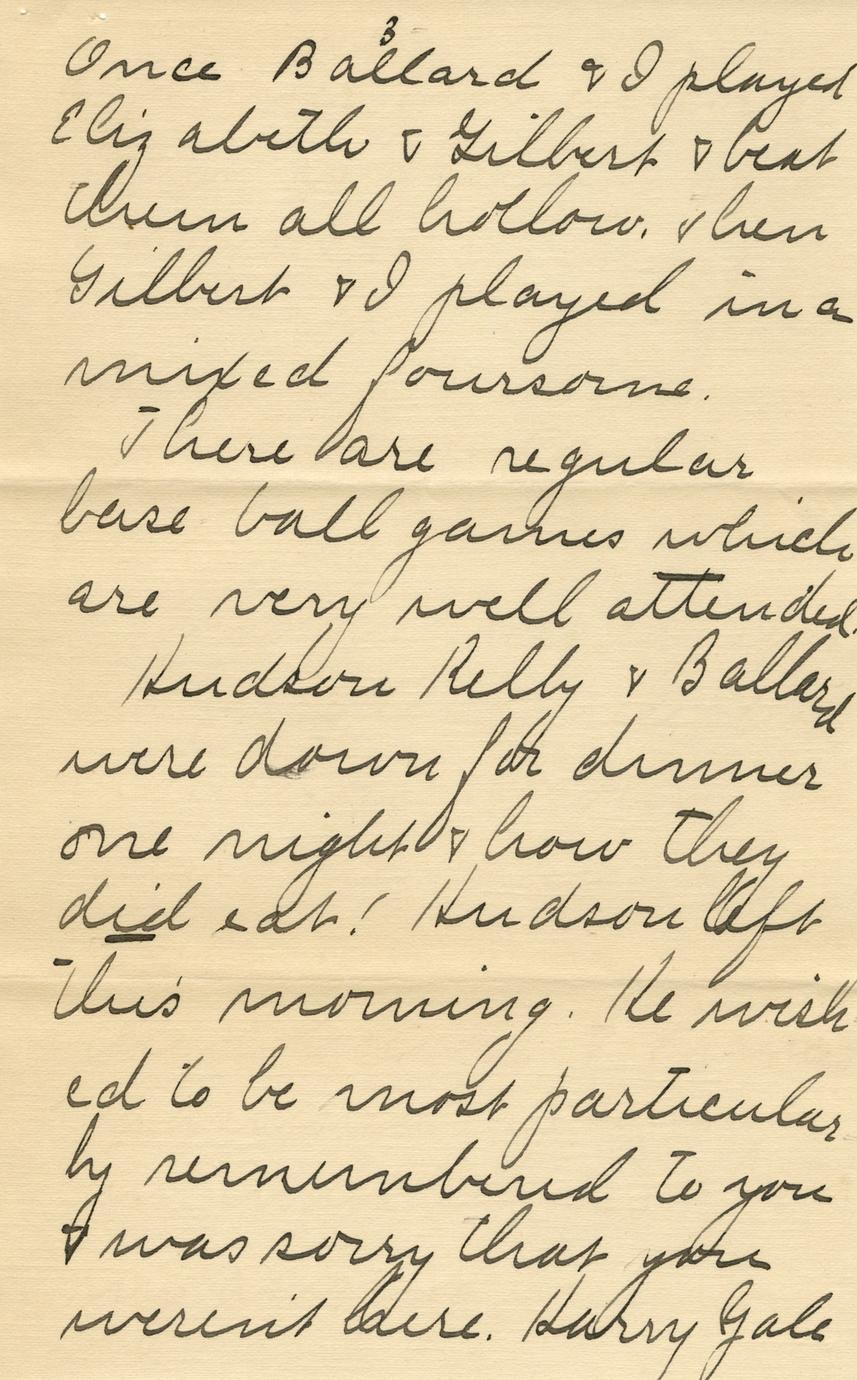 3
Once Ballard & I played
Elizabeth & Gilbert & beat
them all hollow. Then
Gilbert & I played in a
mixed foursome.
There are regular
base ball games which
are very well attended.
Hudson Kelly & Ballard
were down for dinner
one night & how they
did eat! Hudson left
this morning. He wish
ed to be most particular
ly remembered to you
& was sorry that you
weren't here. Harry Gale